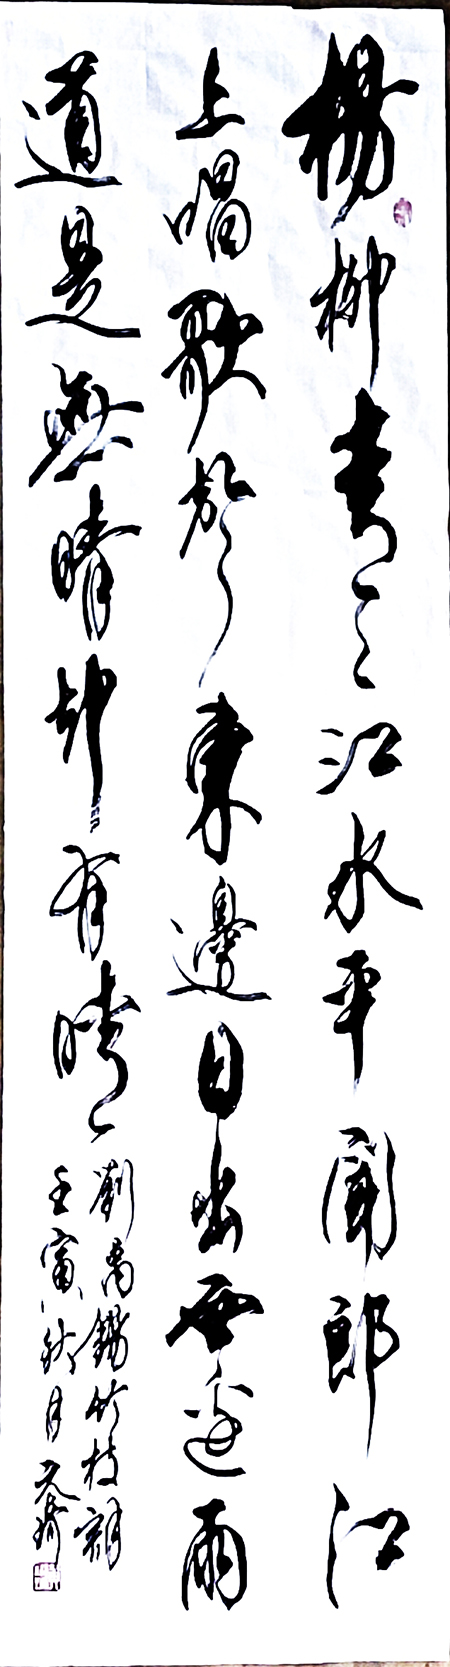 楊柳青々江水平聞郎江
上唱歌聲東邊日出西邊雨
道是無晴却有晴
劉禹錫竹枝詞
壬寅秋月